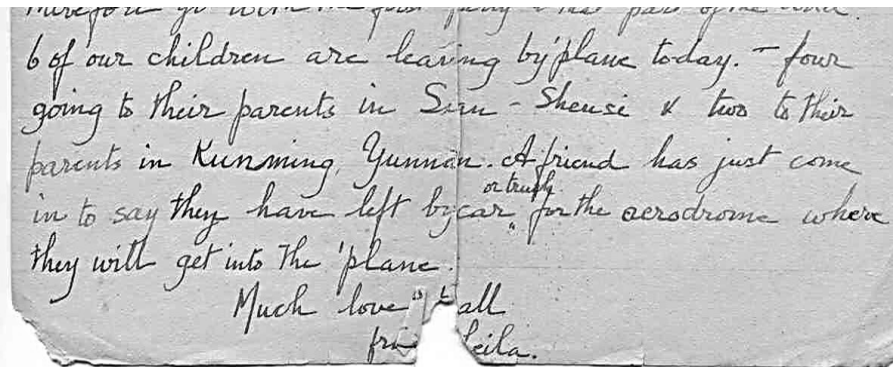 6 of our children are leaving by 'plane to-day. - four
going to their parents in Sian - Shensi & two to their
parents in Kunming, Yunnan. A friend has just come
or truck
in to say they have left by car " for the aerodrome where
they will get into the 'plane.
Much love to all
from